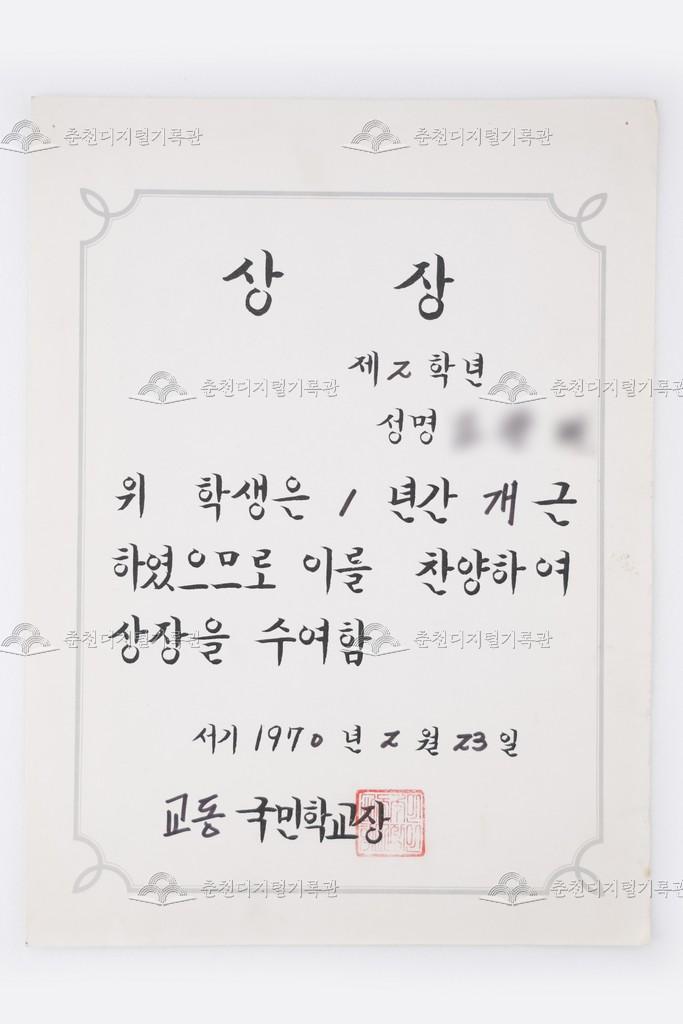 상 장
제 2 학년
성명
위 학생은 1 년간 개근
하였으므로 이를 찬양하여
상장을 수여함
서기 1970 년 2 월 23 일
교동 국민학교장
춘천디지털기록관 춘천디지털기록관
춘천디지털기록관 춘천디지털기록관
춘천디지털기록관 춘천디지털기록관
춘천디지털기록관 춘천디지털기록관